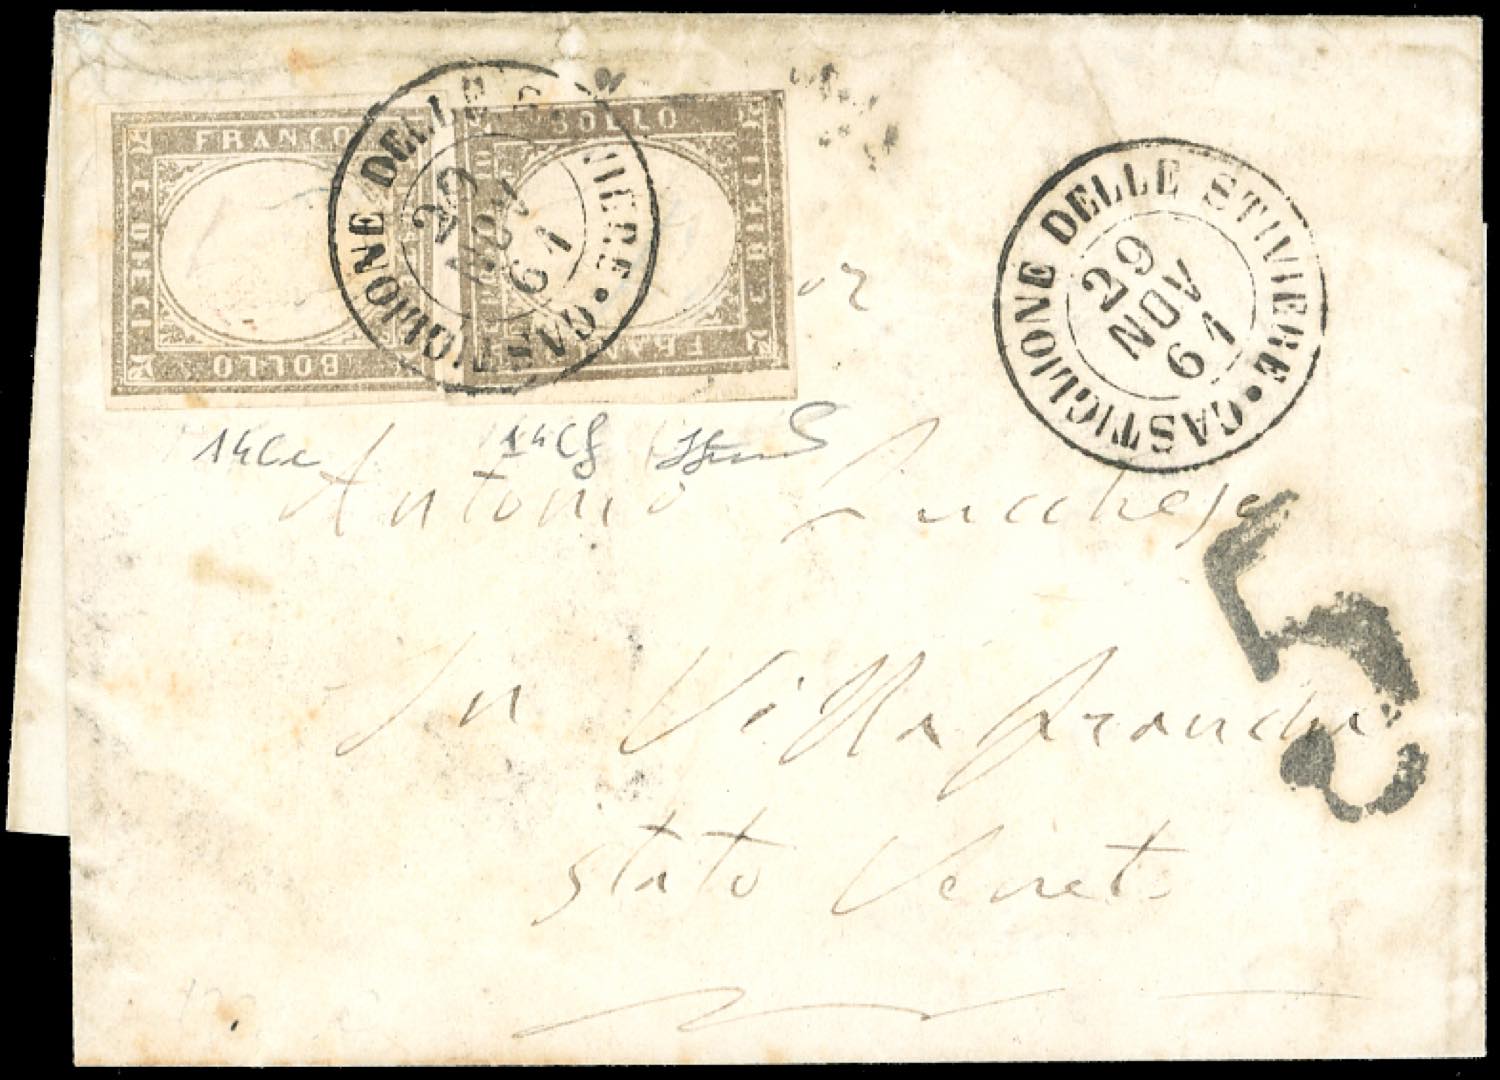 FRANCO
BOLLO
C. DIECI
BOLLO
FRAN
CASTIGLIONE DELLE STIVIERE
29
NOV
61
CASTIGLIONE DELLE STIVIERE
29
NOV
61
or
14Ce 14Cf
Antonio Lucchese
In Villafranca
Stato Veneto
5